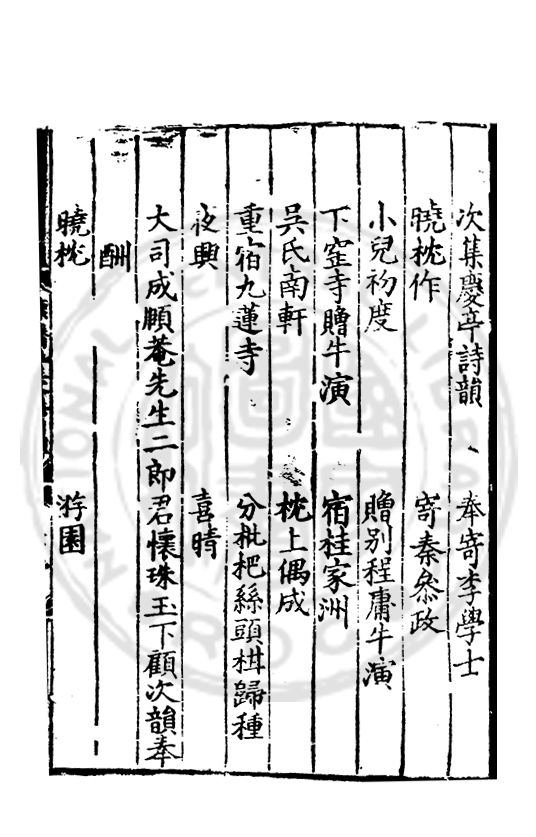 次集慶亭詩韻 奉寄李學士
曉枕作 寄秦叅政
小兒初度 贈別程庸牛演
下窐寺贈牛演 宿桂家洲
吳氏南軒 枕上偶成
重宿九蓮寺 分枇杷絲頭栟歸種
夜興 喜晴
大司成願菴先生二郎君懷珠玉下顧次韻奉
酬
曉枕 游園